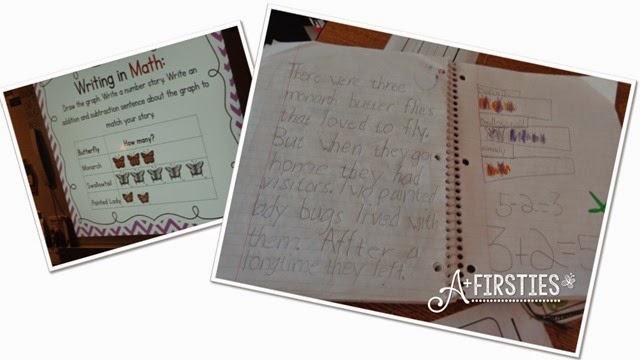 Writing in Math:
Draw the graph. Write a number story. Write an
addition and subtraction sentence about the graph to
match your story.
Butterfly How many?
Monarch
Swallowtail
Painted Lady
There were three
monarch butter flies
that loved to fly.
But when they got
home they had
visitors. Two painted
lady bugs lived with
them. Affter a
longtime they left.
5-2=3
3+2=5
A+FIRSTIES